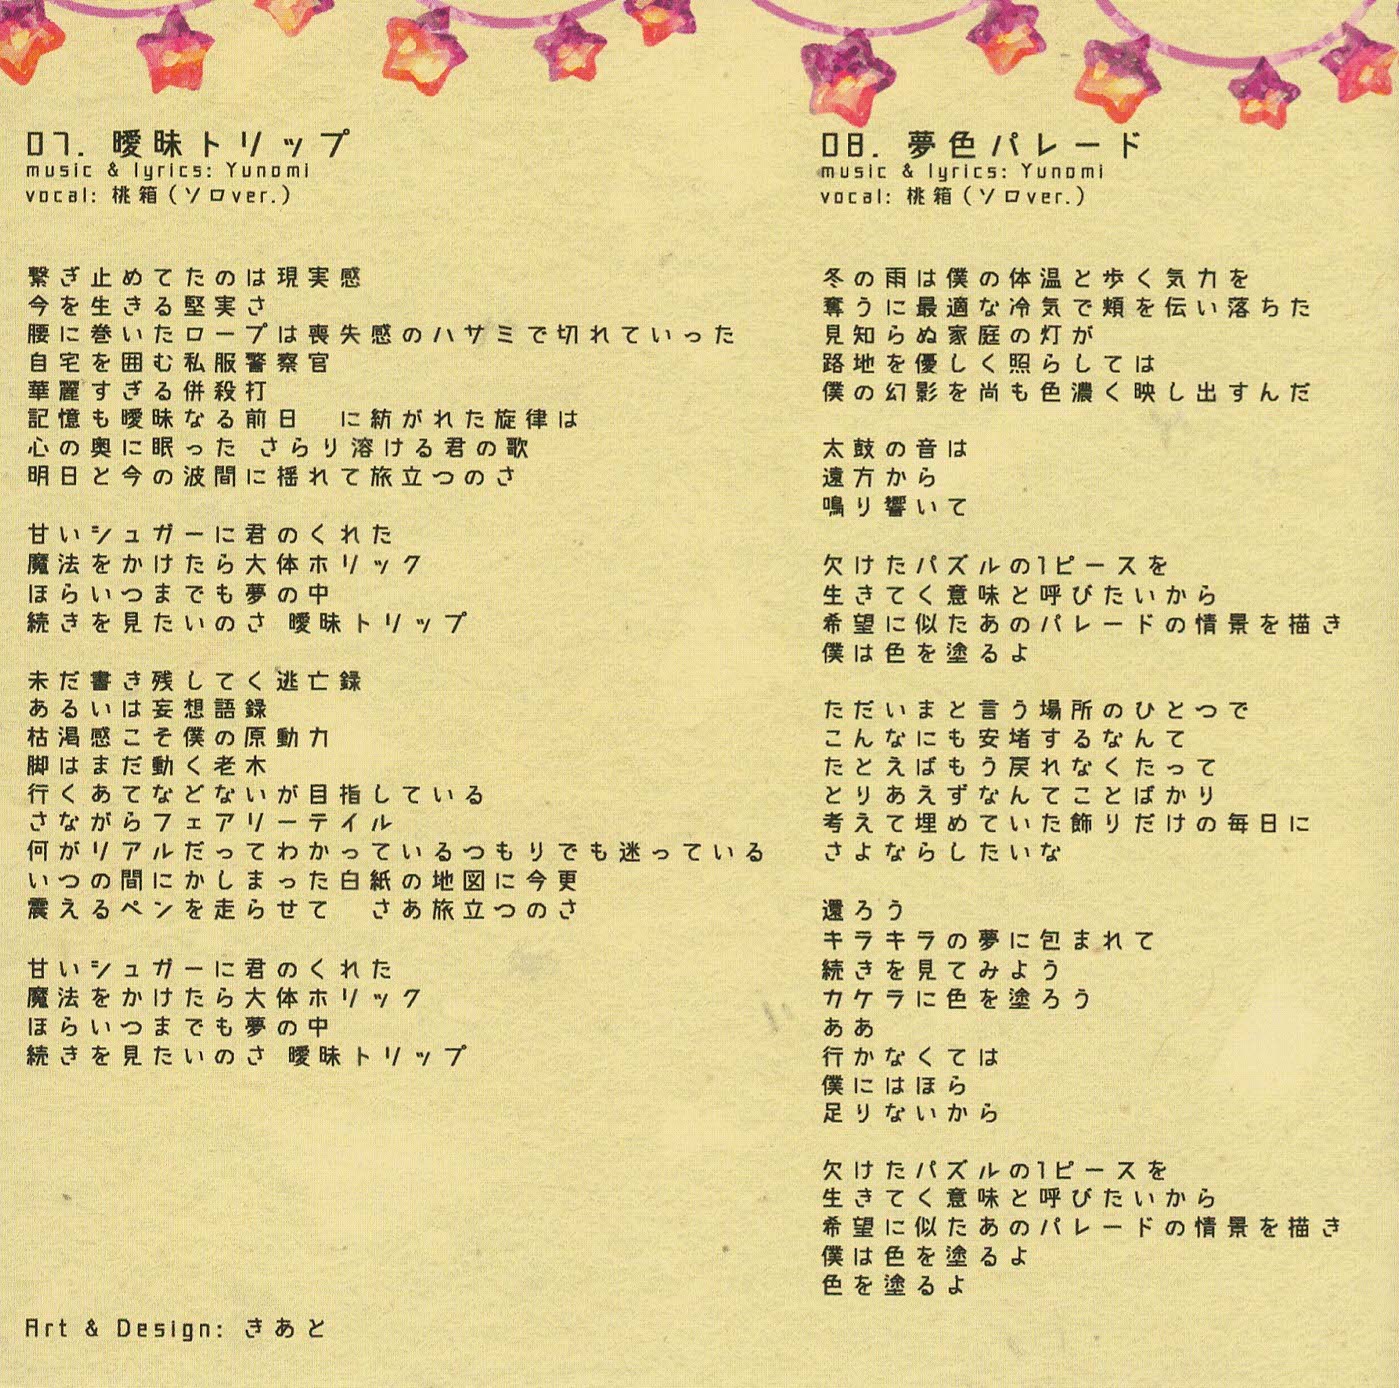 07. 曖昧トリップ
music & lyrics: Yunomi
vocal: 桃箱(ソロver.)
繋ぎ止めてたのは現実感
今を生きる堅実さ
腰に巻いたロープは喪失感のハサミで切れていった
自宅を囲む私服警察官
華麗すぎる併殺打
記憶も曖昧なる前日　に紡がれた旋律は
心の奥に眠った さらり溶ける君の歌
明日と今の波間に揺れて旅立つのさ
甘いシュガーに君のくれた
魔法をかけたら大体ホリック
ほらいつまでも夢の中
続きを見たいのさ 曖昧トリップ
未だ書き残してく逃亡録
あるいは妄想語録
枯渇感こそ僕の原動力
脚はまだ動く老木
行くあてなどないが目指している
さながらフェアリーテイル
何がリアルだってわかっているつもりでも迷っている
いつの間にかしまった白紙の地図に今更
震えるペンを走らせて　さあ旅立つのさ
甘いシュガーに君のくれた
魔法をかけたら大体ホリック
ほらいつまでも夢の中
続きを見たいのさ 曖昧トリップ
Art & Design: きあと
08. 夢色パレード
music & lyrics: Yunomi
vocal: 桃箱(ソロver.)
冬の雨は僕の体温と歩く気力を
奪うに最適な冷気で頬を伝い落ちた
見知らぬ家庭の灯が
路地を優しく照らしては
僕の幻影を尚も色濃く映し出すんだ
太鼓の音は
遠方から
鳴り響いて
欠けたパズルの1ピースを
生きてく意味と呼びたいから
希望に似たあのパレードの情景を描き
僕は色を塗るよ
ただいまと言う場所のひとつで
こんなにも安堵するなんて
たとえばもう戻れなくたって
とりあえずなんてことばかり
考えて埋めていた飾りだけの毎日に
さよならしたいな
還ろう
キラキラの夢に包まれて
続きを見てみよう
カケラに色を塗ろう
ああ
行かなくては
僕にはほら
足りないから
欠けたパズルの1ピースを
生きてく意味と呼びたいから
希望に似たあのパレードの情景を描き
僕は色を塗るよ
色を塗るよ